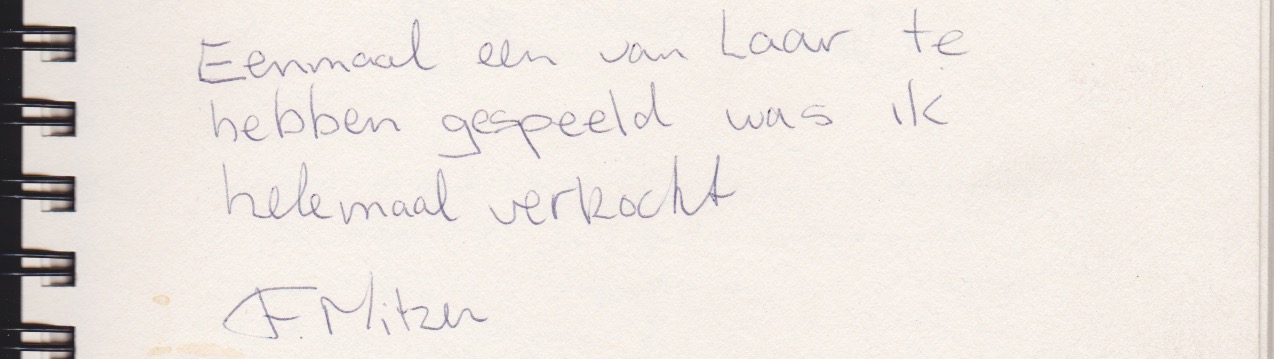 Eenmaal een van Laar te
hebben gespeeld was ik
helemaal verkocht
F. Mitzen